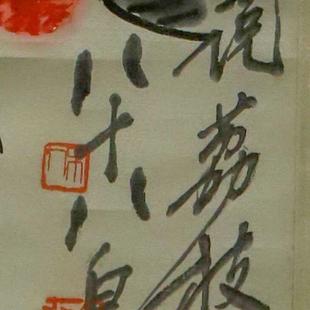 荔枝
八十八白